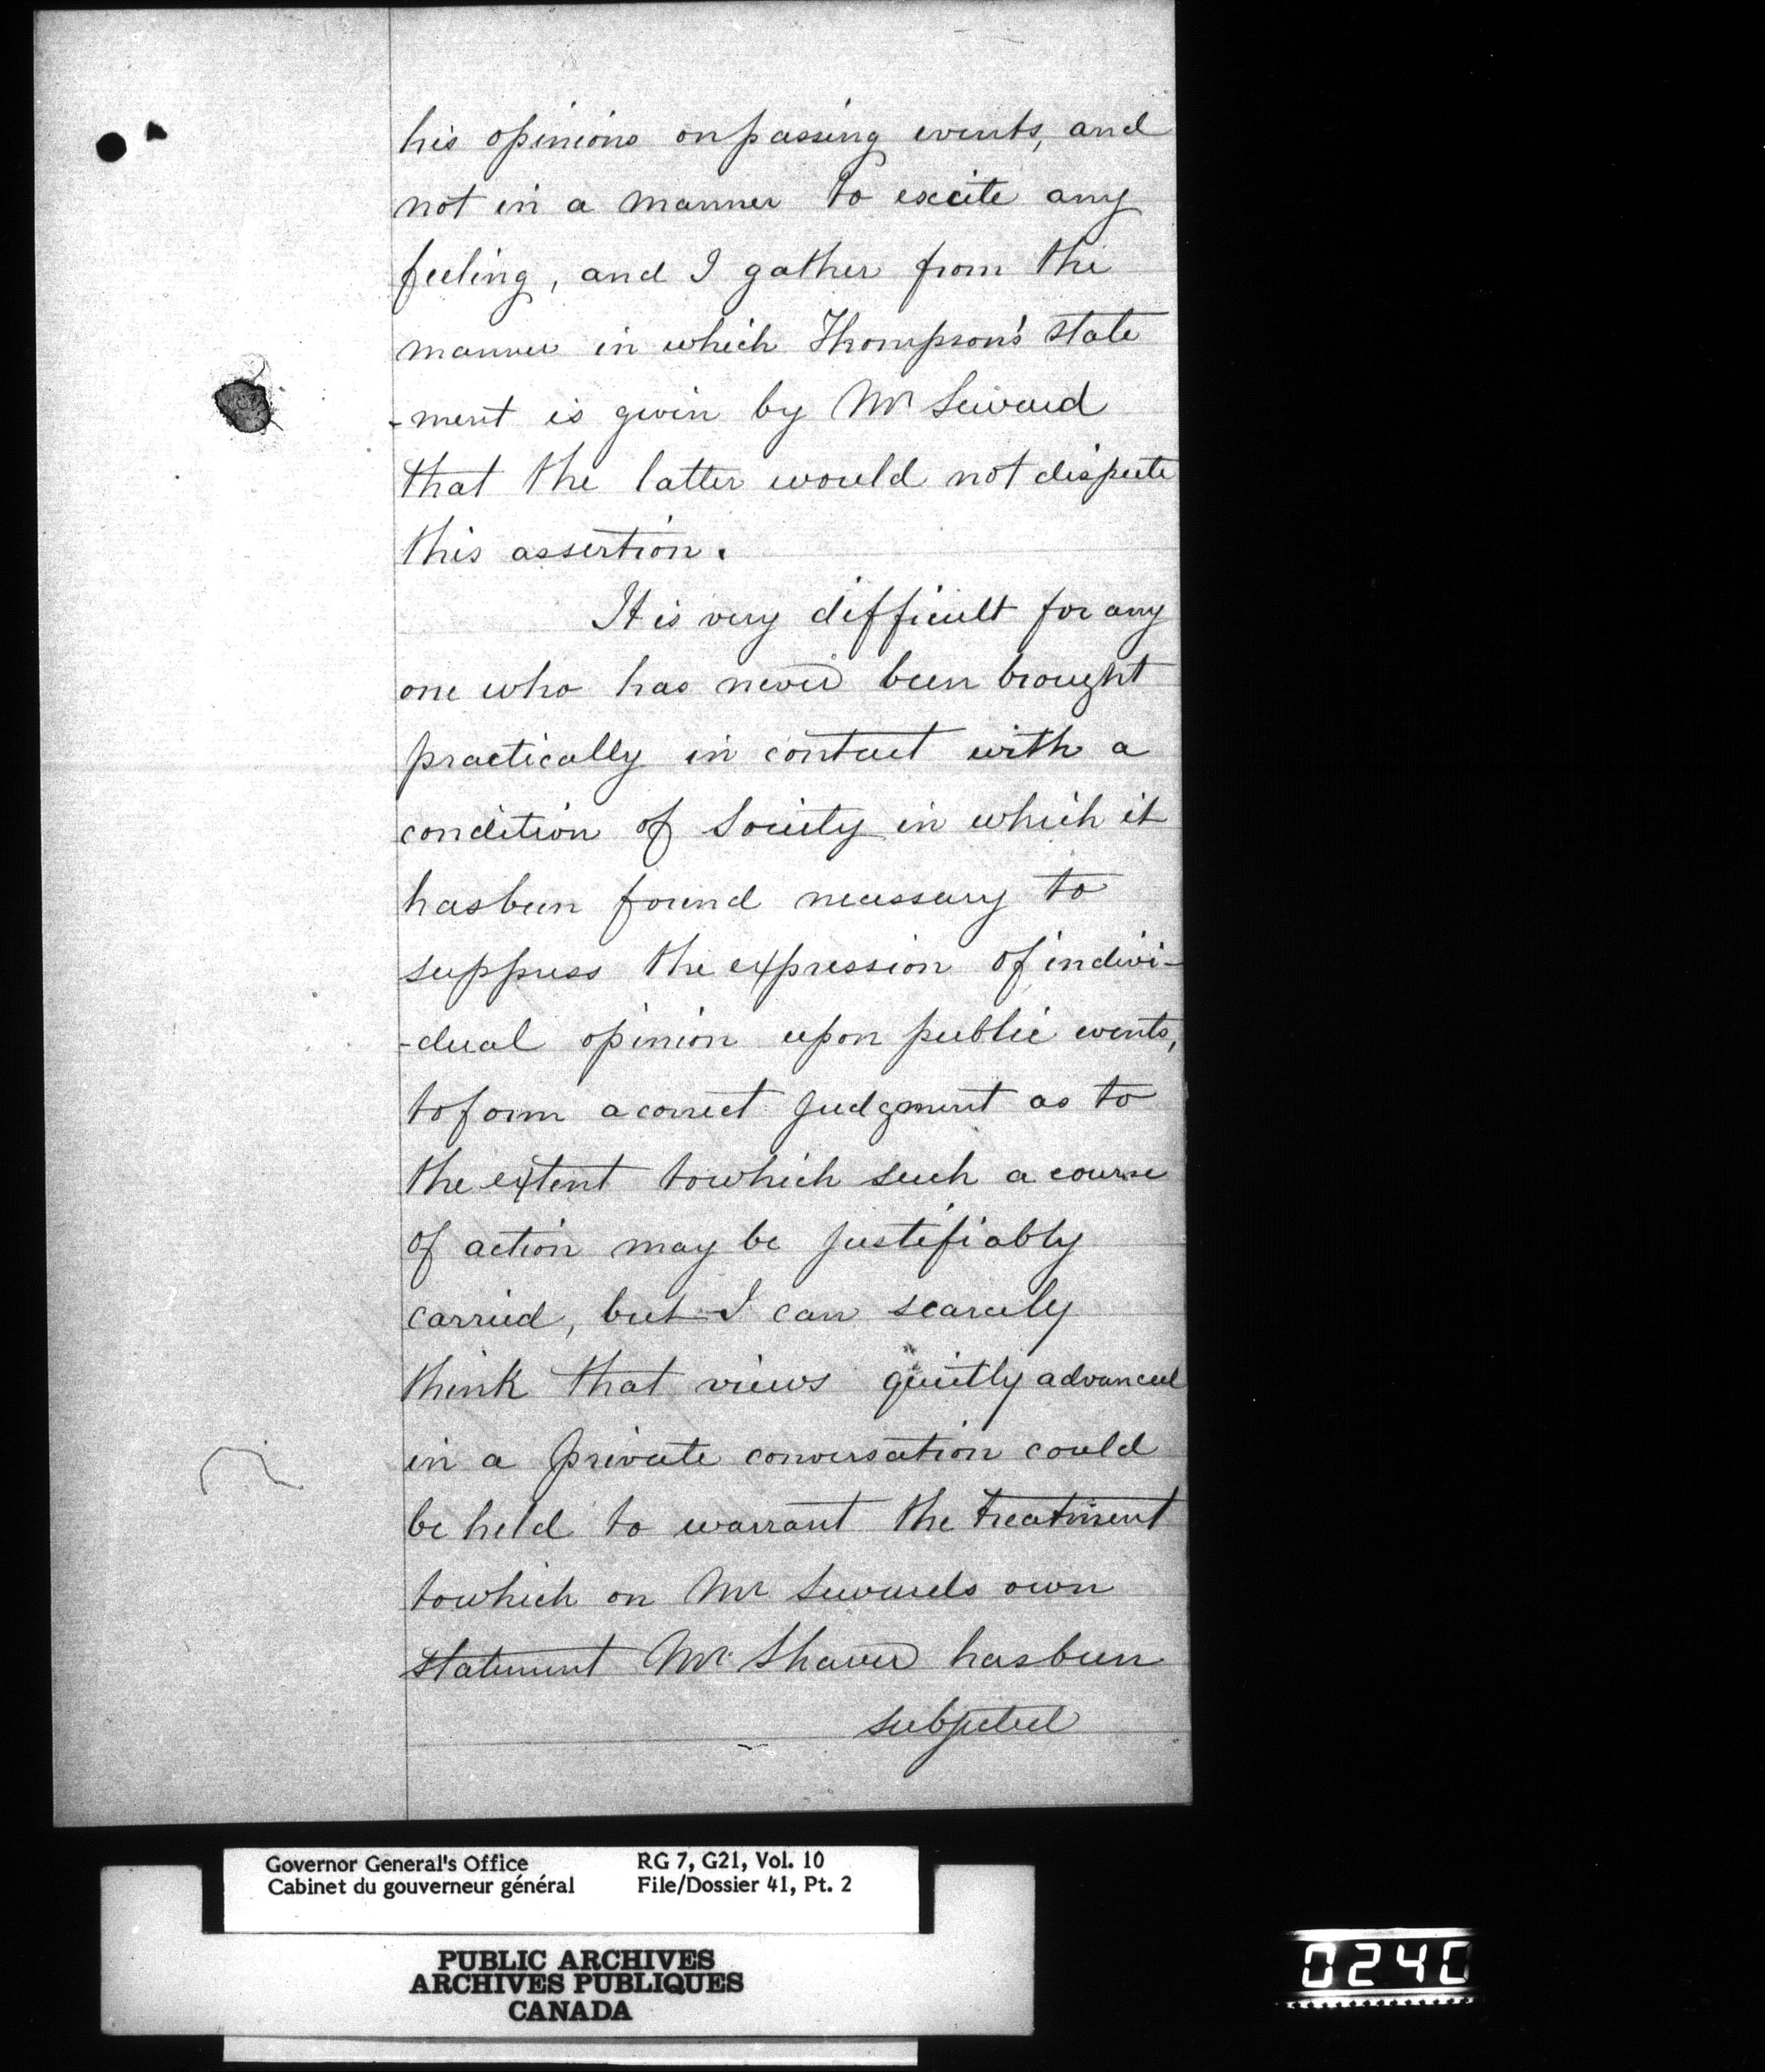 his opinions on passing events, and
not in a manner to excite any
feeling, and I gather from the
manner in which Thompson's state
-ment is given by Mr Seward
that the latter would not dispute
this assertion.
It is very difficult for any
one who has never been brought
practically in contact with a
condition of Society in which it
has been found necessary to
suppress the expression of indivi-
-dual opinion upon public events,
to form a correct judgment as to
the extent to which such a course
of action may be justifiably
carried, but I can scarcely
think that views quietly advanced
in a private conversation could
be held to warrant the treatment
to which on Mr Sewards own
statement Mr. Shaver has been
subjected
Governor General's Office RG 7, G21, Vol. 10
Cabinet du gouverneur général File/Dossier 41, Pt. 2
PUBLIC ARCHIVES
ARCHIVES PUBLIQUES
CANADA
0240